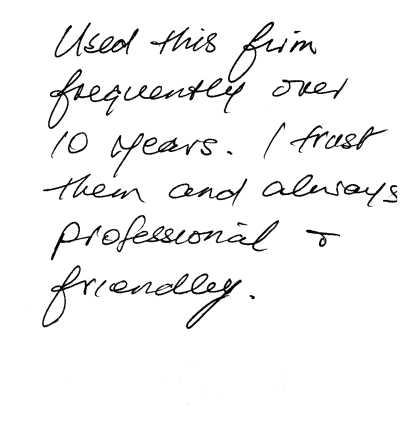 Used this firm
frequently over
10 years. I trust
them and always
professional &
friendley.